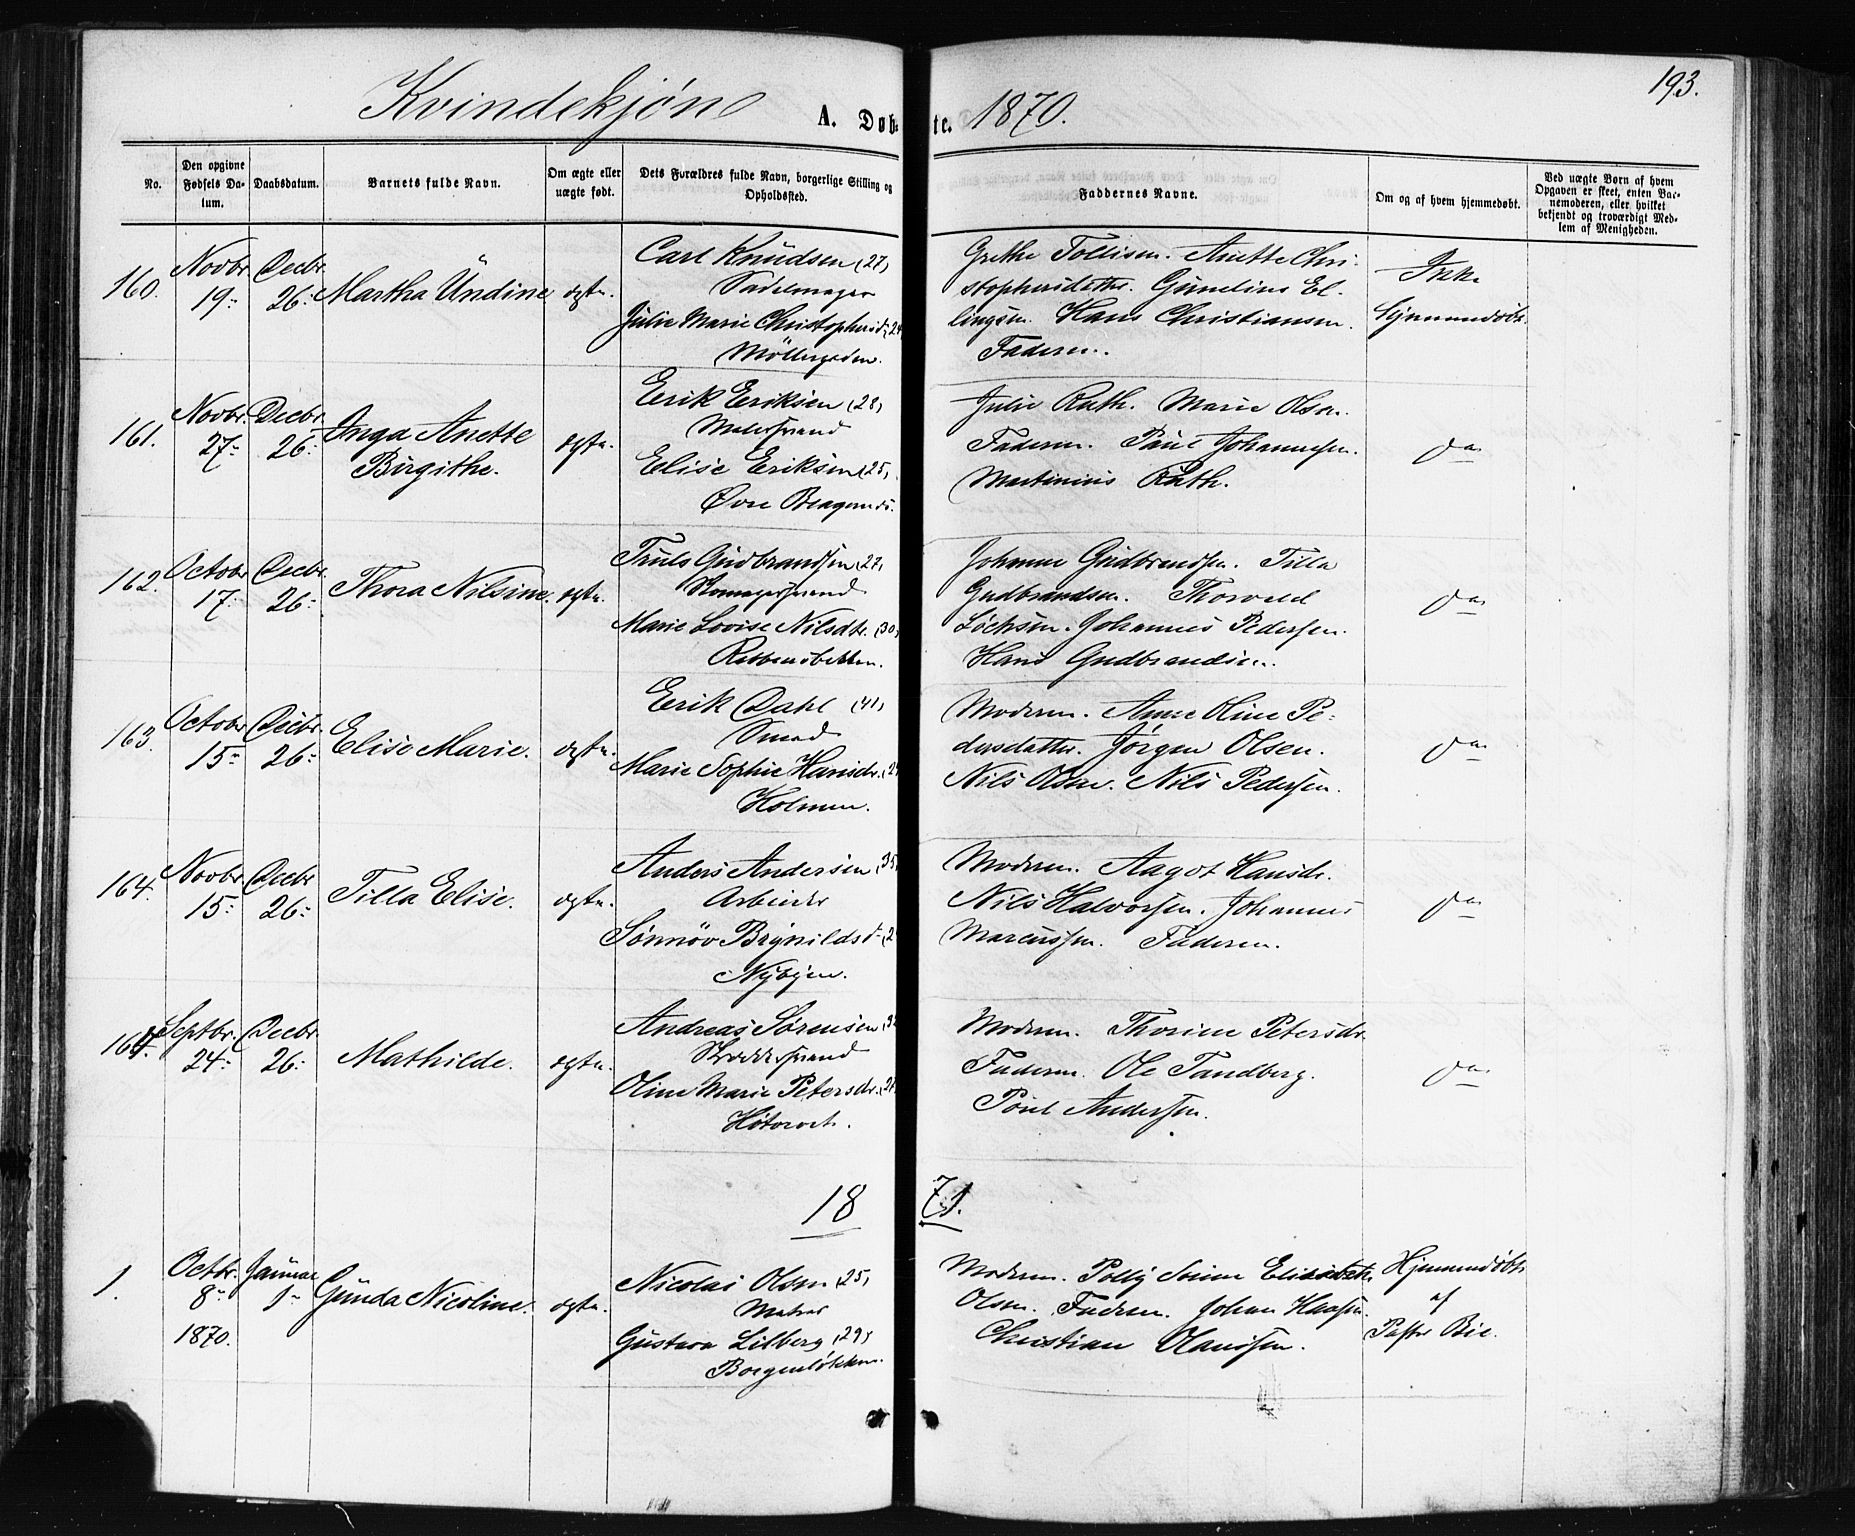 193.
Kvindekjøn A. Døbte. 1870.
No.
Den opgivne Fødsels Datum.
Daabsdatum.
Barnets fulde Navn.
Om ægte eller uægte født.
Dets Forældres fulde Navn, borgerlige Stilling og Opholdssted.
Faddernes Navne.
Om og af hvem hjemmedøbt.
Ved uægte Børn af hvem Opgaven er skeet, enten Barnemoderen, eller hvilket bekjendt og troværdigt Medlem af Menigheden.
160.
Novbr. 19
Decbr. 26
Martha Undine
ægte.
Carl Knudsen (27)
Sadelmager
Julie Marie Christophersd.
Möllergaden.
Grethe Tollisen. Anette Chri-
stophersdatter. Gunelius El-
lingsen. Hans Christiansen.
Faderen.
Ikke
hjemmedøbt.
161.
Novbr. 27
Decbr. 26
Inga Anette
Birgithe.
ægte.
Erik Eriksen (28)
Malersvend
Elise Eriksen (25)
Øvre Bragernes.
Julie Rath. Marie Olsen.
Faderen. Paul Johannesen.
Martinius Rath.
do
162.
Octobr 17
Decbr. 26
Thora Nilsine.
ægte.
Truls Gudbrandsen (27)
Skomagersvend
Marie Lovise Nilsdtr. (30)
Johanne Gudbrandsen. Tilla
Gudbrandsen. Thorvald
Johannes Pedersen.
Hans Gudbrandsen.
do
163.
Octobr 15
Decbr. 26
Elise Marie.
ægte.
Erik Dahl (41)
Smed
Marie Sophie Hansdr.
Holmen.
Moderen. Anne Oline Pe-
dersdatter. Jørgen Olsen.
Nils Olsen. Nils Pedersen.
do
164.
Novbr. 15
Decbr 26
Tilla Elise.
ægte.
Anders Andersen (35)
Arbeider
Sønnøv Brynildsd.
Nybyen.
Moderen. Aagot Hansdr.
Nils Halvorsen. Johannes
Marcussen. Faderen.
do
165.
Septbr. 24
Decbr. 26
Mathilde.
ægte.
Andreas Sørensen
Skræddersvend
Oline Marie Petersdr.
Høtorvet.
Moderen. Thorine Petersdr.
Faderen. Ole Tandberg.
Poul Andersen.
do
1871.
1.
Octbr. 8 1870.
Januar 1
Gunda Nicoline.
ægte.
Nicolai Olsen (25)
Matros
Gustava Lilberg (29)
Borgenløkken.
Moderen. Polly Serine Elisabeth
Olsen. Faderen. Johan Hansen.
Christian Olaussen.
Hjemmedøbt
af
Pastor Bie.